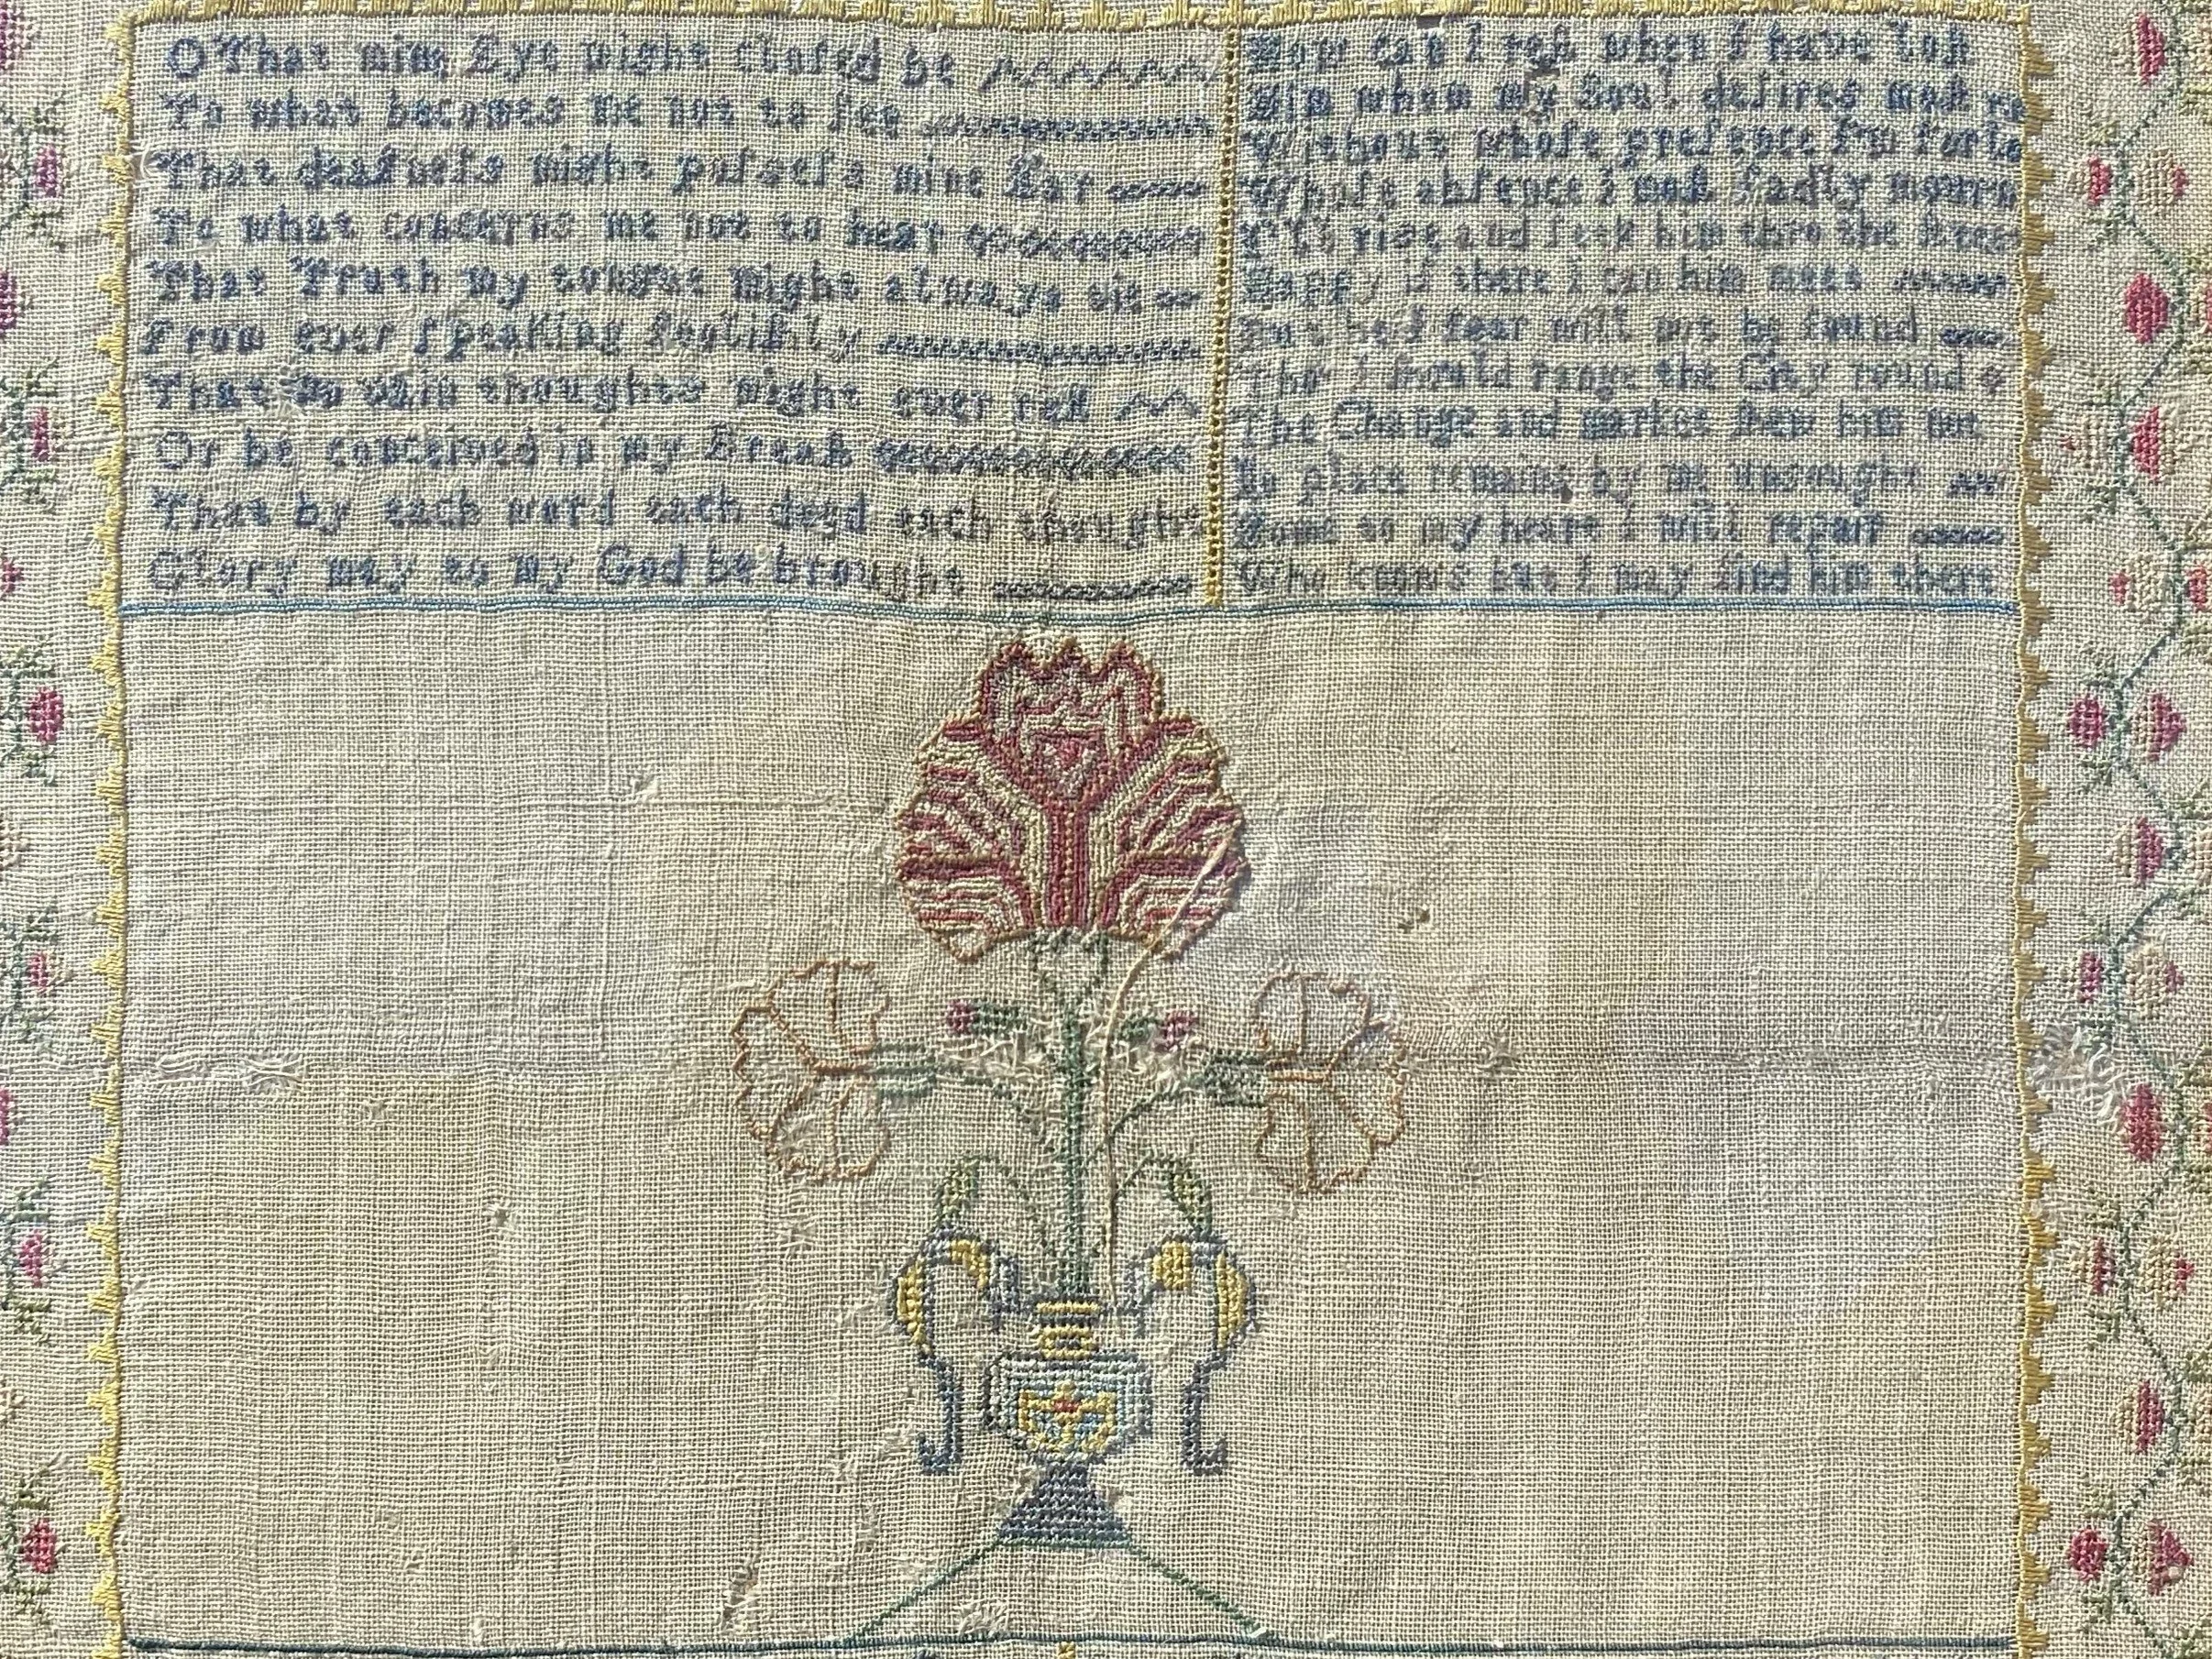 O That mine Eye might closed be
To what becomes me not to ſee
That deafneſs might poſseſs mine Ear
To what concerns me not to hear
That Truth my tongue might always tie
From ever ſpeaking fooliſhly
That no vain thoughts might ever reſt
Or be conceived in my Breaſt
That by each word each deed each thought
Glory may to my God be brought
How can I reſt when I have loſt
Him whom my Soul deſires moſt
Without whoſe preſence I'm forlo
Whoſe abſence I muſt ſadly mourn
I'll riſe and ſeek him thro the ſtree
Happy if there I can him meet
But he I fear will not be found
Tho' I ſhould range the City round
The Change and market ſhew him not
No place remains by me unsought
Home to my heart I will repair
Who knows but I may find him there